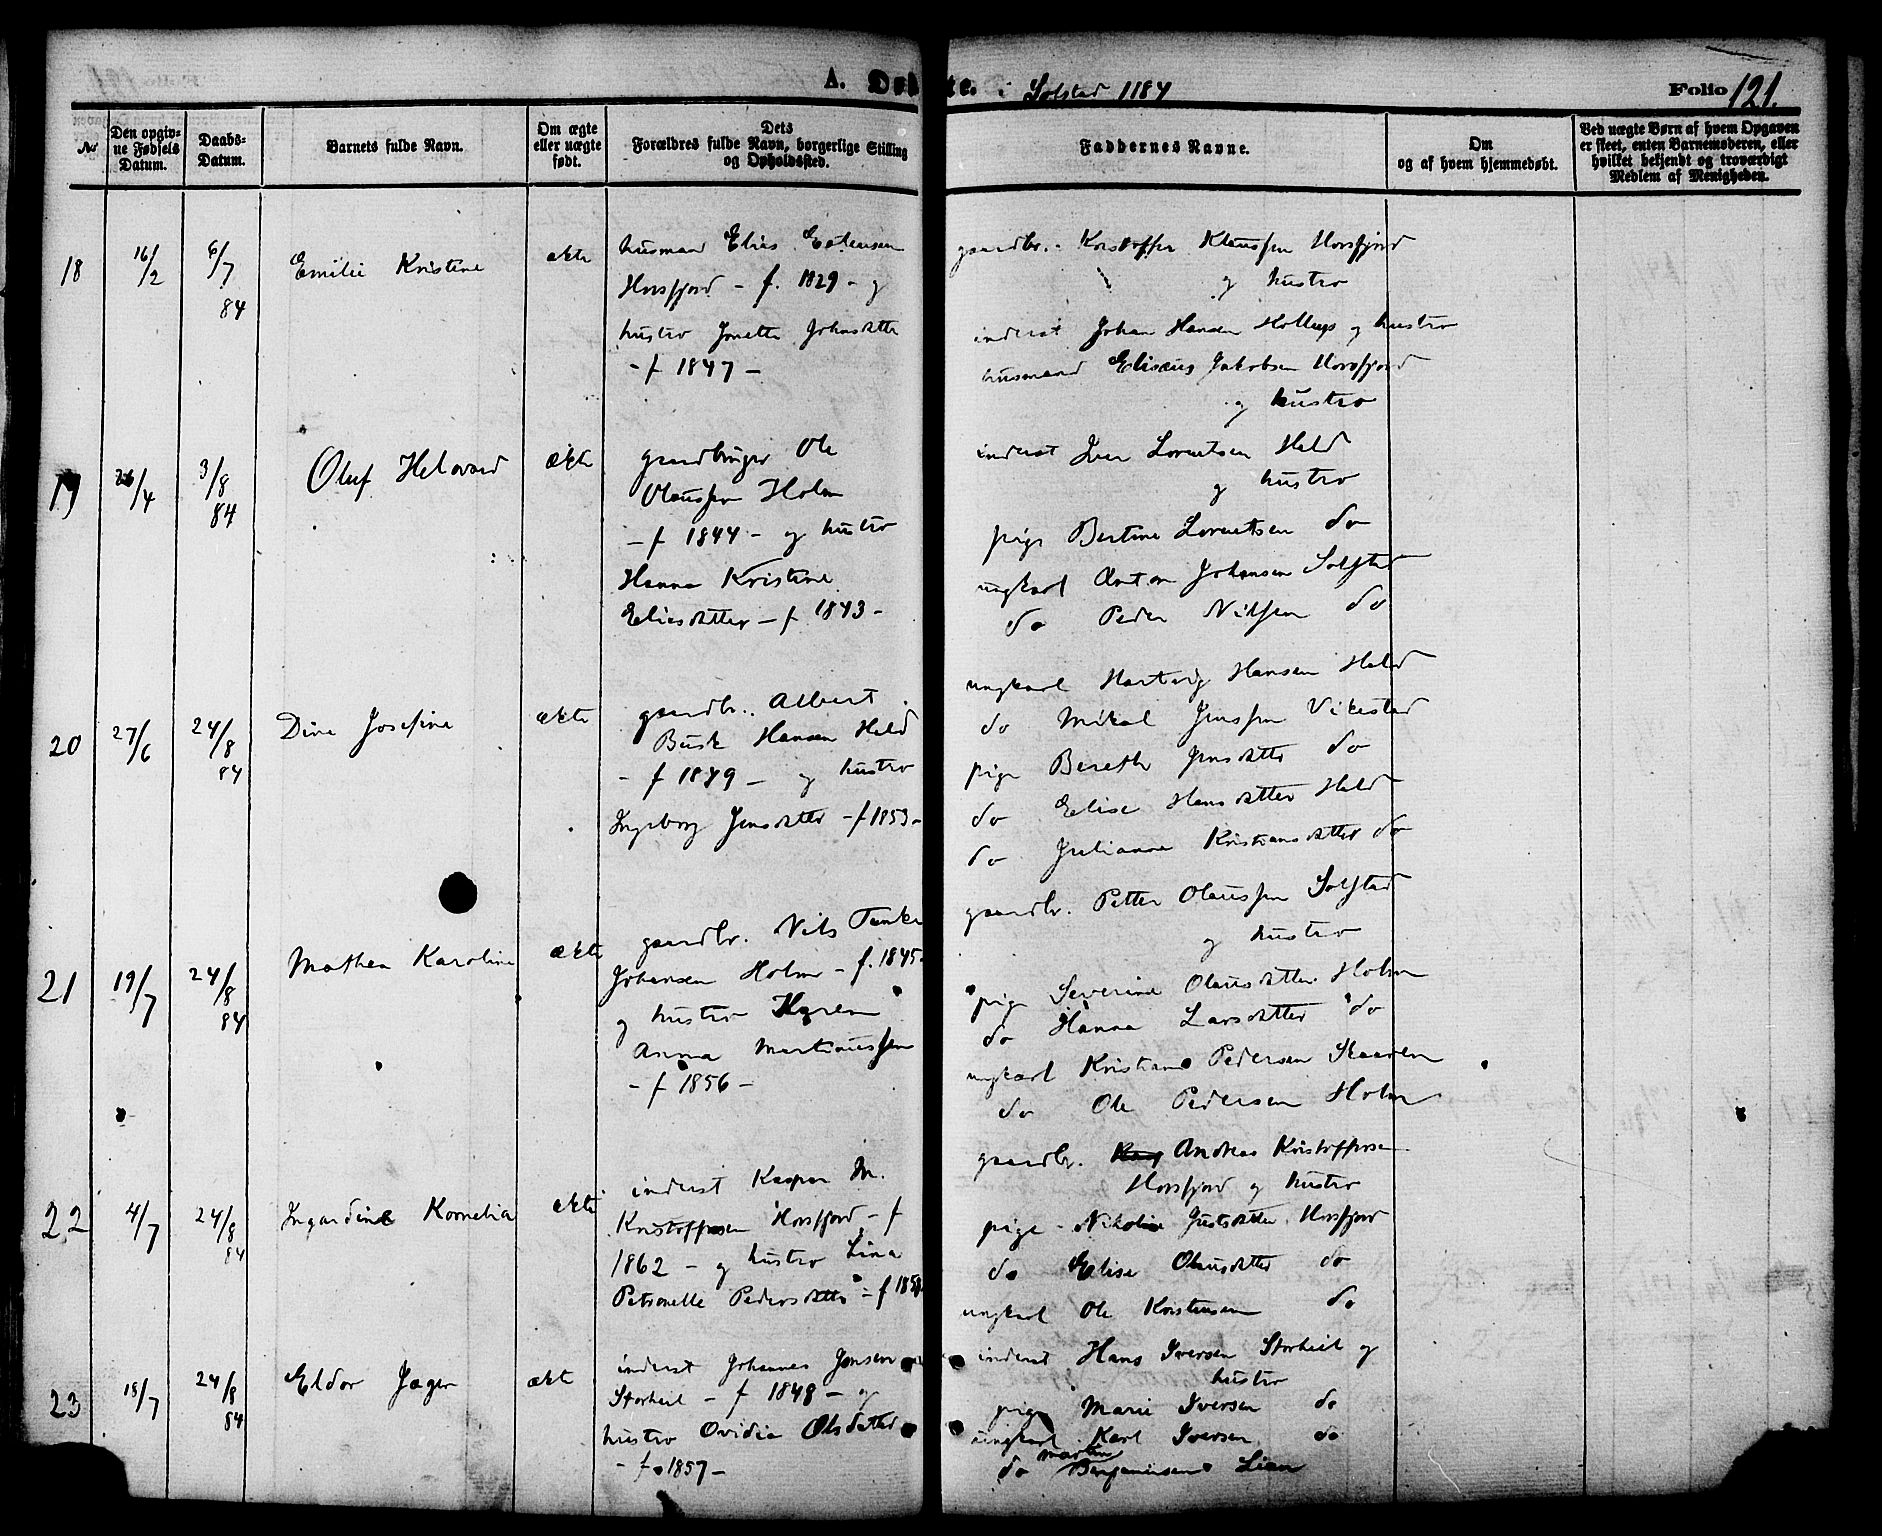 A. Døbte. i Solstad 1184
Folio 121.
No
Den opgiv-
ne Fødsels
Datum.
Daabs-
Datum.
Barnets fulde Navn.
Om ægte
eller uægte
født.
Dets
Forældres fulde Navn, borgerlige Stilling
og Opholdssted.
Faddernes Navne.
Om
og af hvem hjemmedøbt.
Ved uægte Børn af hvem Opgaven
er skeet, enten Barnemoderen, eller
hvilket bekjendt og troværdigt
Medlem af Menigheden.
18
16/2
6/7
84
Emilie Kristine
ækte
husmand Elias
Horsfjord - f. 1829 - og
hustro Jonette Johnsdatter
- f 1847 -
gaardbr. Kristoffer Klaussen Horsfjord
og hustro
inderst Johan Hansen Hollup og hustro
husmand Elisæus Jakobsen Horsfjord
og hustro
19
26/4
3/8
84
Oluf Helvard
ækte
gaardbruger Ole
Olaussen Holm
- f 1844 - og hustro
Hanna Kristine
Eliasdatter - f 1843 -
inderst Iver Lorentsen Held
og hustro
pige Bertine Lorentsen do
ungkarl Anton Johansen Solstad
do Peder Nilssen do
20
27/6
24/8
84
Dina Josefine
ækte
gaardbr. Albert
Busk Hansen Held
- f 1849 - og hustro
Ingeborg Jensdatter - f 1853 -
ungkarl Hartvig Hansen Held
do Mikal Jenssen Vikestad
pige Bereth Jensdatter do
do Elise Hansdatter Held
do Julianna Kristiansdatter do
21
19/7
24/8
84
Mathea Karoline
ækte
gaardbr. Nils Tanke
Johansen Holm - f. 1845
og hustro Karen
Anna Martinussen
- f 1856 -
gaardbr. Petter Olaussen Solstad
og hustro
pige Severine Olausdatter Holm
do Hanna Larsdatter do
ungkarl Kristian Pedersen Skaaren
do Ole Pedersen Holm
22
4/7
24/8
84
Ingardine Kornelia
ækte
inderst Kasper M.
Kristoffersen Horsfjord - f
1862 - og hustro Lina
Petronelle Pedersdatter - f
gaardbr. Andreas Kristoffersen
Horsfjord og hustro
pige - Nikoline Justsdatter Horsfjord
do Elise Olausdatter do
ungkarl Ole Kristensen do
23
18/7
24/8
84
Eldor Jager
ækte
inderst Johannes Jensen
Storheil - f 1848 - og
hustro Ovidia Olsdatter
- f 1857 -
inderst Hans Iversen Storheil og
hustro
pige Marie Iversen do
ungkarl Karl Iversen do
do Martin Benjaminsen Lian